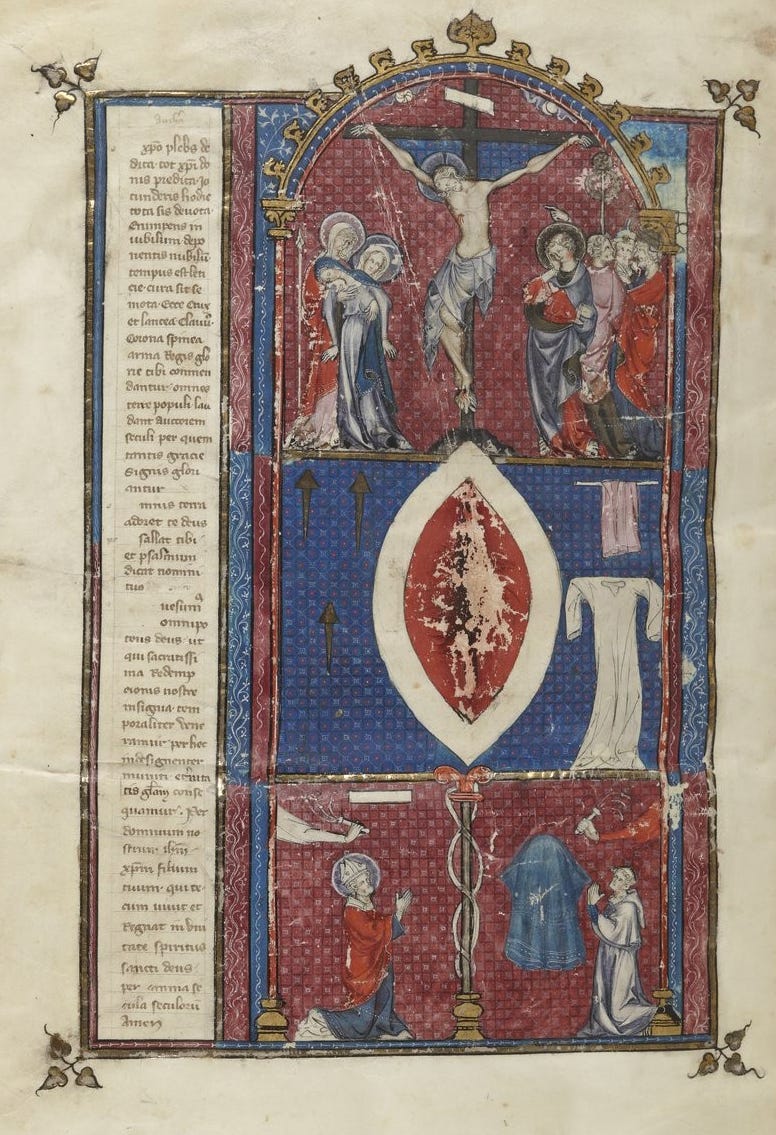 xpo plebs de
dita tot xpi do
nis predita Jo
cunderis hodie
tota sis devota
Erumpens in
iubilum depo
nentis nubilū
tempus est len
cie cura sit se
mota Ecce crux
et lancea clavū
Corona spinea
arma Regis glo
rie tibi commen
dantur omnes
terre populi lau
dant auctorem
seculi per quem
tantis gracie
signis glori
antur
mnis terra
adoret te deus
sallat tibi
et psalmum
dicat nomini
tuo
uesum
omnipo
tens deus ut
qui sacratissi
ma Redemp
cionis nostre
insignia tem
poraliter vene
ramur per hec
indesinenter
muniti
tis glām conse
quamur. Per
dominum no
strum ihm
xpm filium
tuum qui te
cum vivit et
Regnat in vni
tate spiritus
sancti deus
per omnia se
cula seculorū
Amen